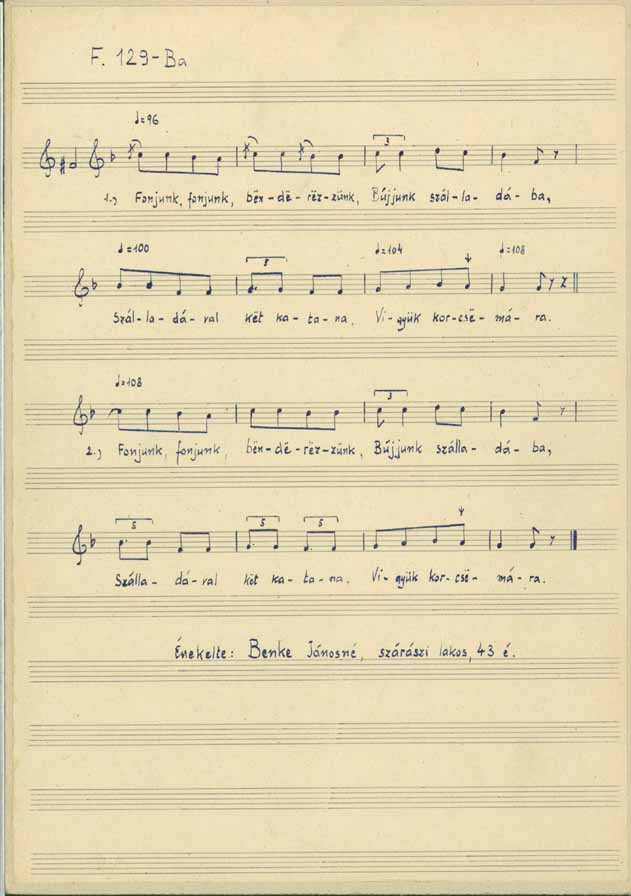 F. 129-Ba
♩=96
1., Fonjunk, fonjunk, bën-dë-rëz-zünk, Bújjunk szál-la-dá-ba,
♩=100 5 ♩=104 ♩=108
Szál-la-dá-val két ka-ta-na, Vi-gyük kor-csë-má-ra.
♩=108 3
2., Fonjunk, fonjunk, bën-dë-rëz-zünk, Bújjunk szálla-dá-ba,
5 5 5
Szálla-dá-val két ka-ta-na. Vi-gyük kor-csë-má-ra.
Énekelte: Benke Jánosné, szárászi lakos, 43 é.